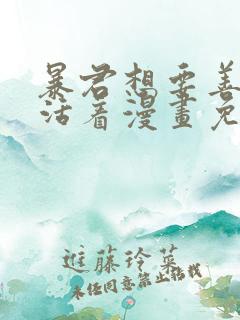 暴君想要善
活着漫畫免
進藤玲菜
未经同意禁止转载